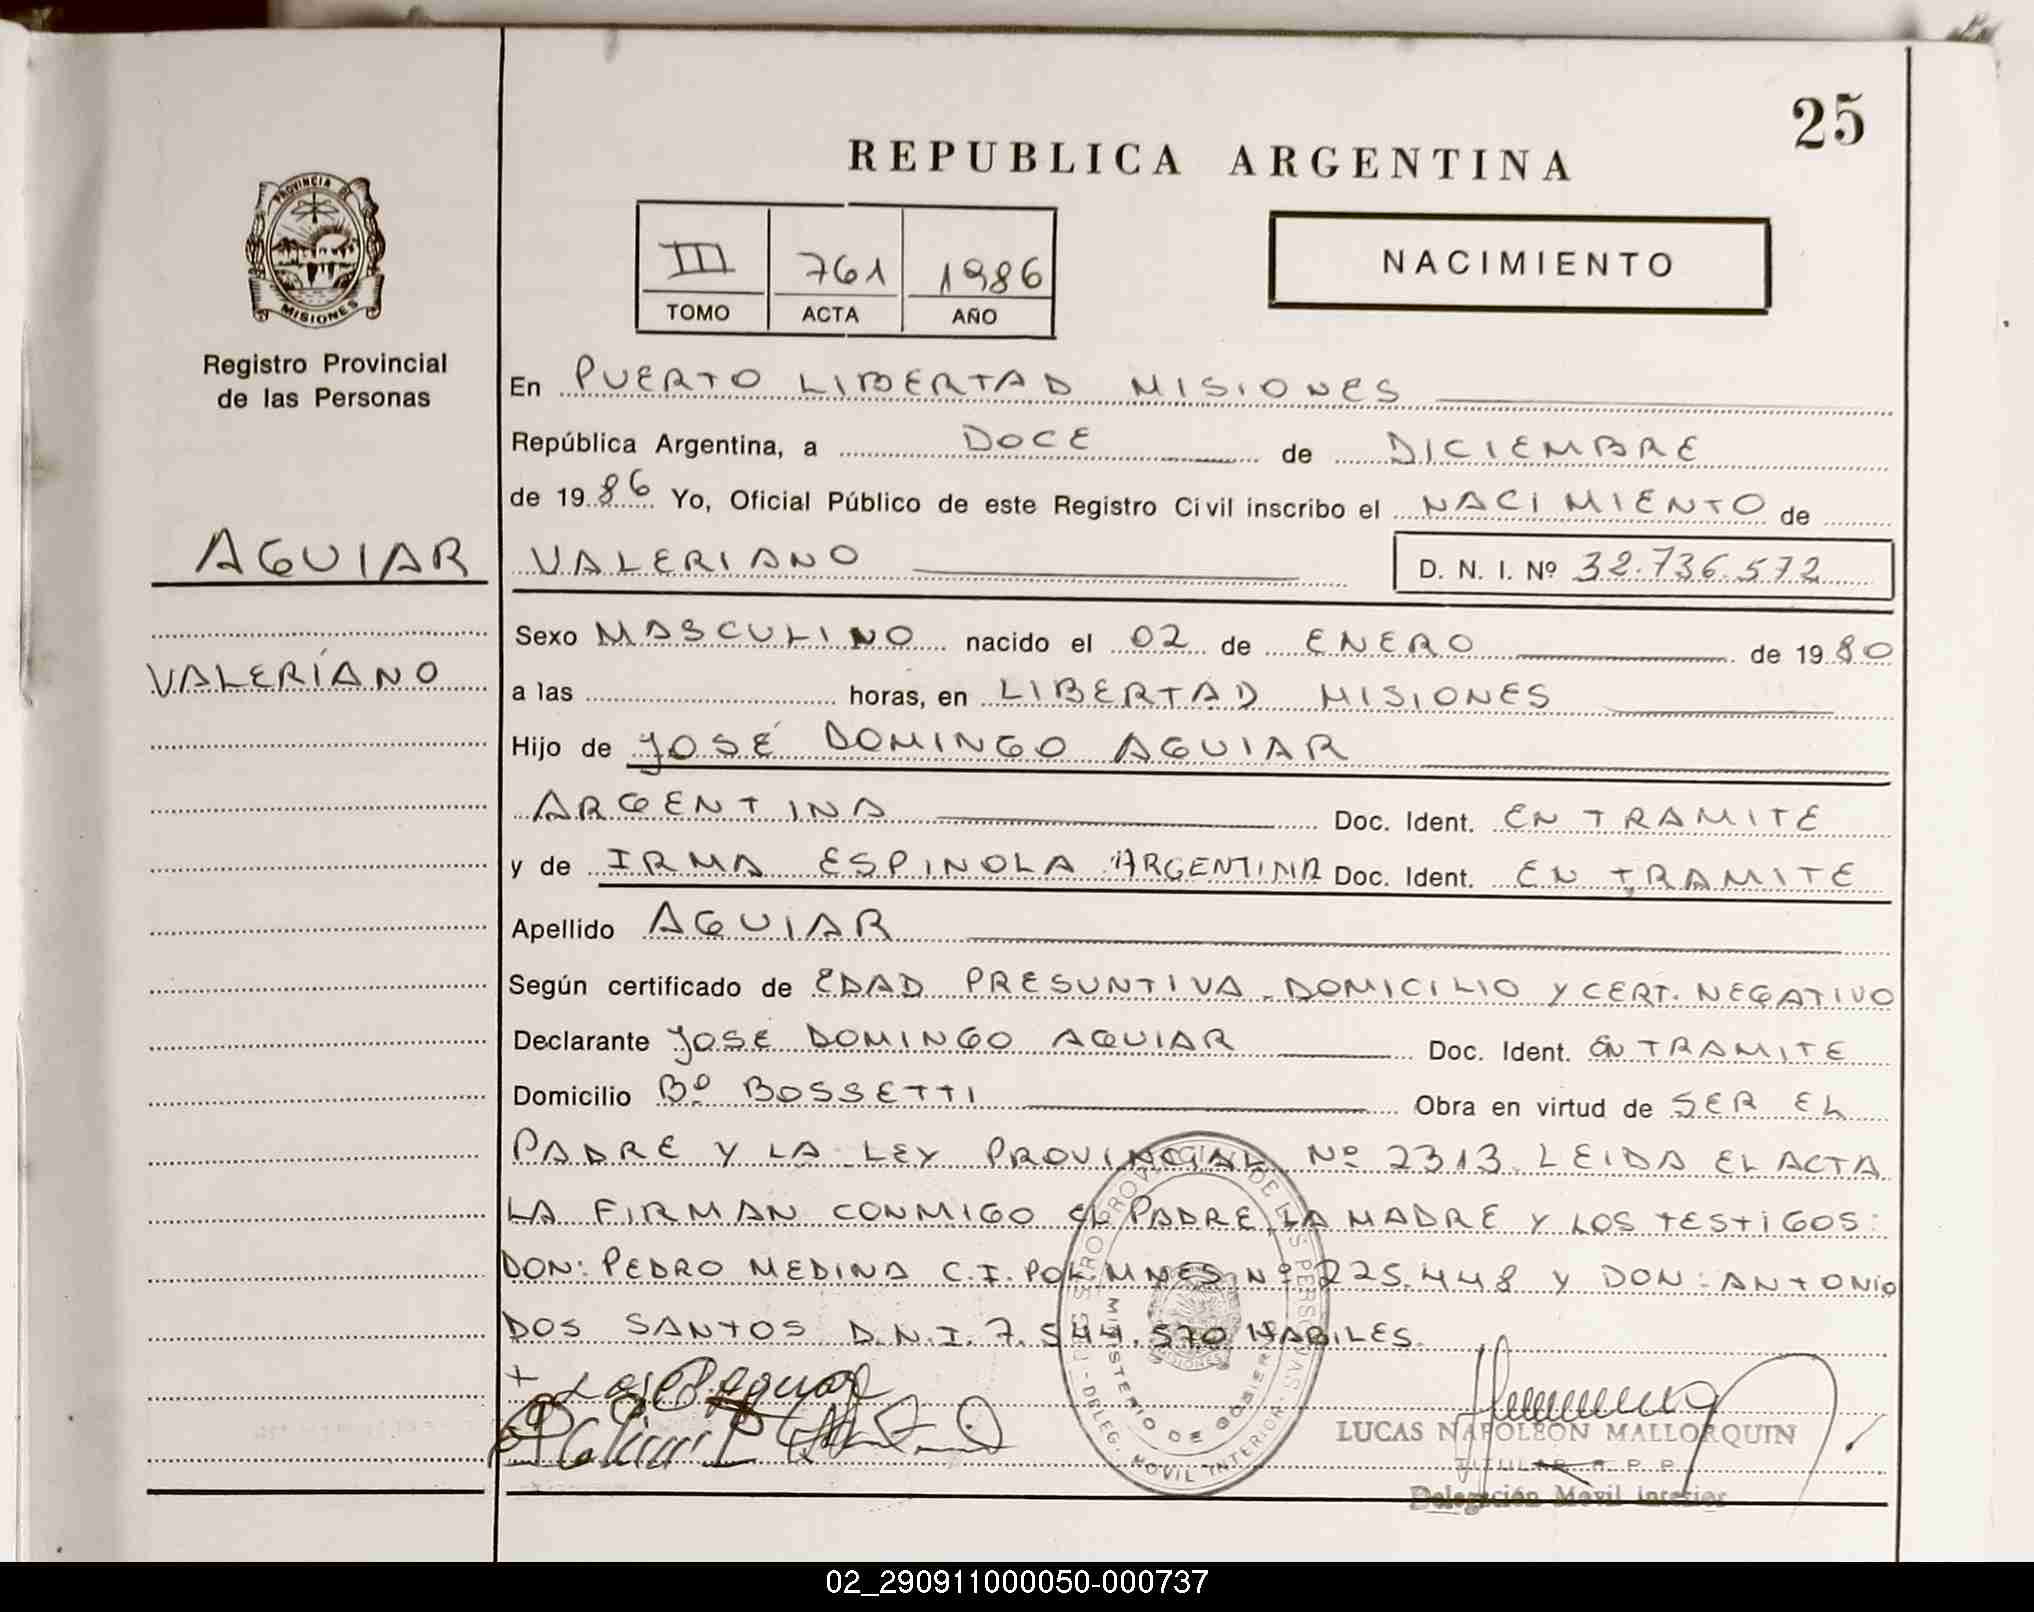 25
REPUBLICA ARGENTINA
PROVINCIA DE
MISIONES
Registro Provincial
de las Personas
III 761 1986
TOMO ACTA AÑO
NACIMIENTO
En PUERTO LIBERTAD MISIONES
República Argentina, a DOCE de DICIEMBRE
de 1986 Yo, Oficial Público de este Registro Civil inscribo el NACIMIENTO de
AGUIAR
VALERIANO
VALERIANO D. N. I. Nº 32.736.572
Sexo MASCULINO nacido el 02 de ENERO de 1980
a las horas, en LIBERTAD MISIONES
Hijo de JOSÉ DOMINGO AGUIAR
ARGENTINA Doc. Ident. EN TRAMITE
y de IRMA ESPINOLA ARGENTINA Doc. Ident. EN TRAMITE
Apellido AGUIAR
Según certificado de EDAD PRESUNTIVA DOMICILIO Y CERT. NEGATIVO
Declarante JOSE DOMINGO AGUIAR Doc. Ident. EN TRAMITE
Domicilio Bº BOSSETTI Obra en virtud de SER EL
PADRE Y LA LEY PROVINCIAL Nº 2313. LEIDA EL ACTA
LA FIRMAN CONMIGO EL PADRE, LA MADRE Y LOS TESTIGOS:
DON: PEDRO MEDINA C.I. POL. MNES Nº 225.448 Y DON: ANTONIO
DOS SANTOS D.N.I. 7.544.570 HABILES.
LUCAS NAPOLEON MALLORQUIN
TITULAR R. P. P.
Delegación Movil Interior
MINISTERIO DE GOBIERNO
DELEG. MOVIL INTERIOR
02_290911000050-000737